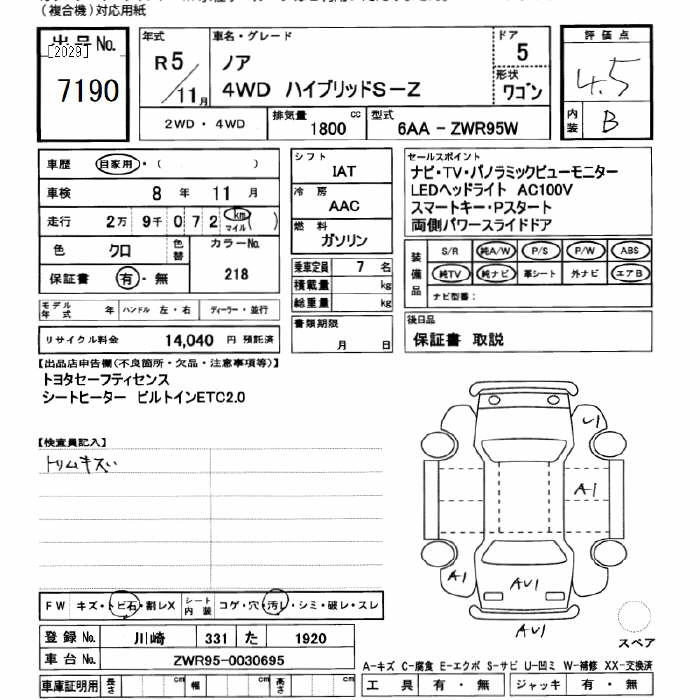 (複合機)対応用紙
出品No.
[2029]
7190
年式
R5/11月
車名・グレード
ノア
4WD ハイブリッドS-Z
ドア
5
形状
ワゴン
評価点
4.5
内装
B
2WD・4WD
排気量
1800 cc
型式
6AA - ZWR95W
車歴
自家用・( )
車検
8 年 11 月
走行
2万 9千 0 7 2 km マイル( )
色
クロ
色替
カラーNo.
218
保証書
有・無
モデル年式
年
ハンドル 左・右
ディーラー・並行
リサイクル料金
14,040 円 預託済
シフト
IAT
冷房
AAC
燃料
ガソリン
乗車定員 7 名
積載量 kg
総重量 kg
書類期限
月 日
セールスポイント
ナビ・TV・パノラミックビューモニター
LEDヘッドライト AC100V
スマートキー・Pスタート
両側パワースライドドア
装備品
S/R 純A/W P/S P/W ABS
純TV 純ナビ 革シート 外ナビ エアB
ナビ型番:
後日品
保証書 取説
【出品店申告欄(不良箇所・欠品・注意事項等)】
トヨタセーフティセンス
シートヒーター ビルトインETC2.0
【検査員記入】
トリムキズい
U1
A1
A1
AU1
AU1
スペア
FW キズ・トビ石・割レX
シート内装 コゲ・穴・汚レ・シミ・破レ・スレ
登録No. 川崎 331 た 1920
車台No. ZWR95-0030695
車庫証明用 長さ cm 幅 cm 高さ cm
A-キズ C-腐食 E-エクボ S-サビ U-凹ミ W-補修 XX-交換済
工具 有・無 ジャッキ 有・無